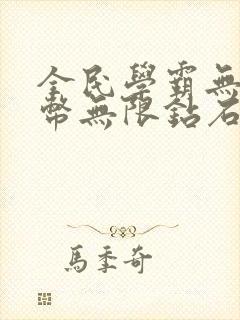 全民學霸無
幣無限鉆石
馬季奇